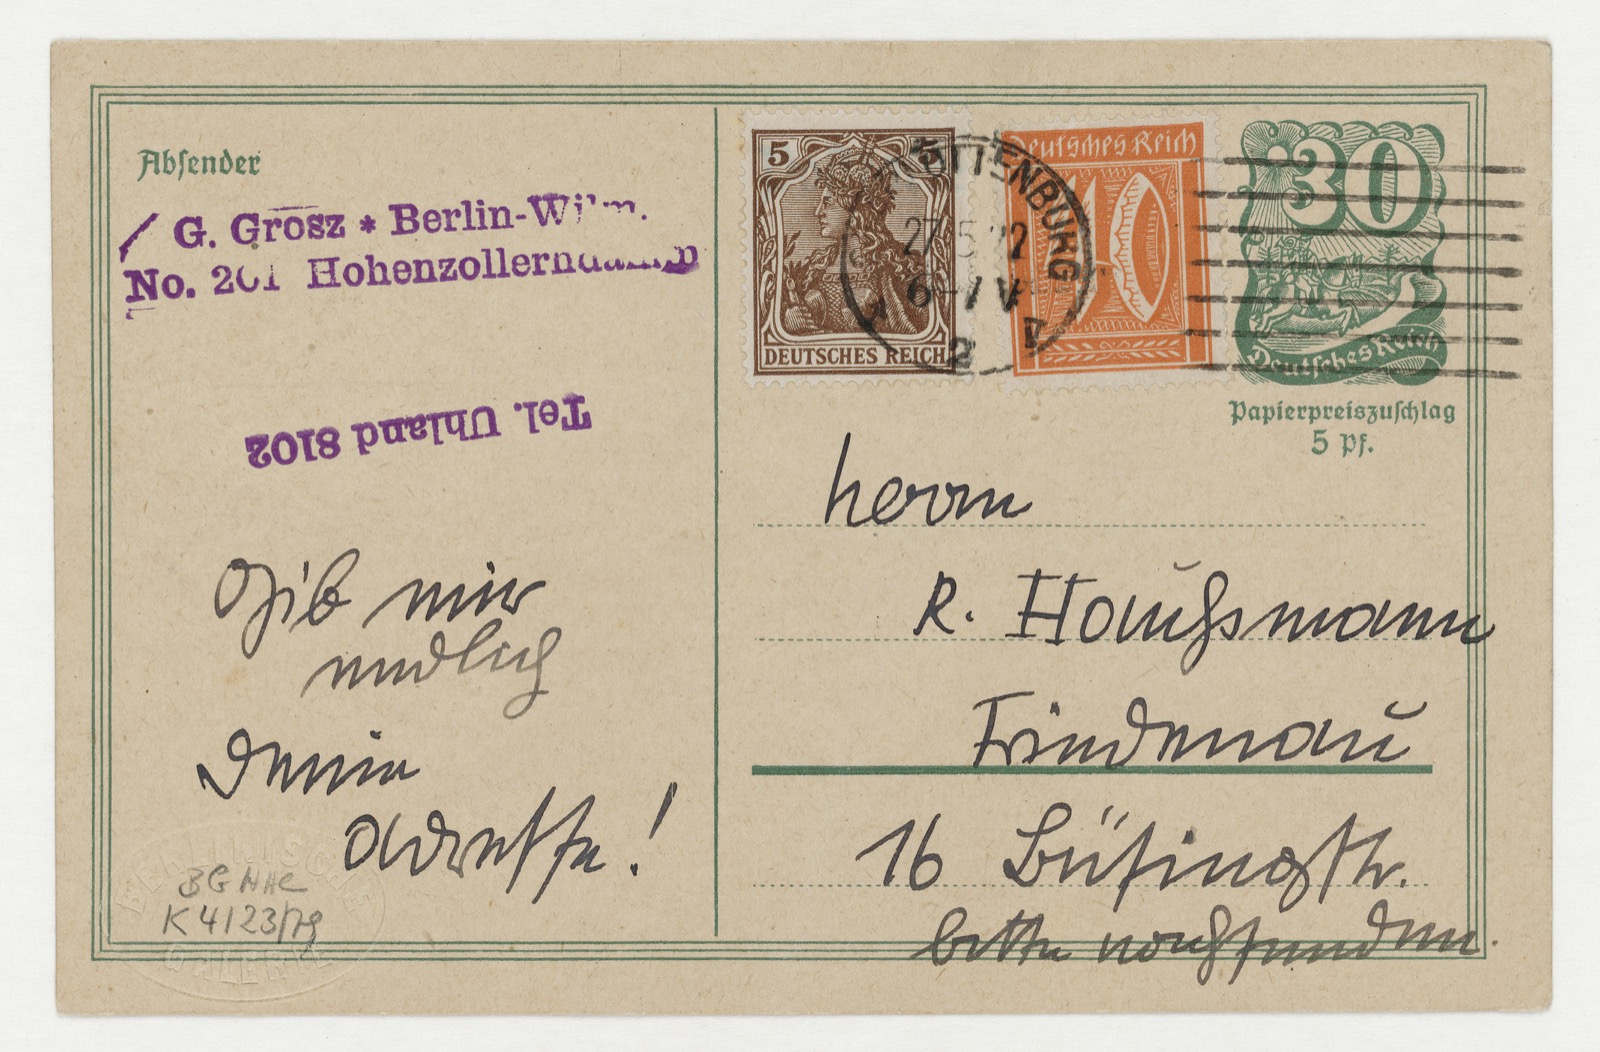 Absender
G. Grosz * Berlin-Wilm.
No. 201 Hohenzollerndamm
Tel. Uhland 8102
Gib mir
endlich
Deine
Adresse!
BG HHC
K 4123/79
BERLINISCHE
GALERIE
5 5
DEUTSCHES REICH
Deutsches Reich
10
OTTENBURG
27.5.22
6-7 V
2
30
Deutsches Reich
Papierpreiszuschlag
5 Pf.
Herrn
R. Haussmann
Friedenau
16 Büsingstr.
bitte nachsenden.